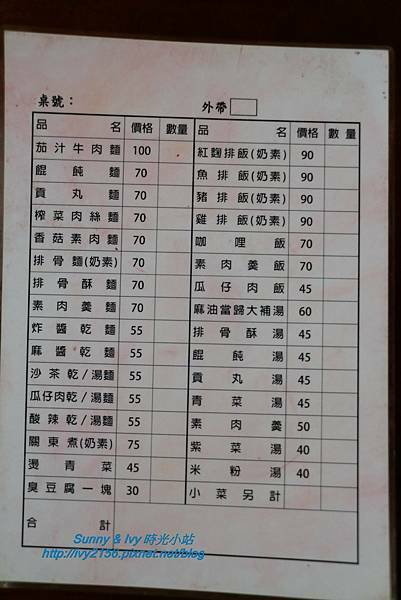 桌號： 外帶
品名 價格 數量 品名 價格 數量
茄汁牛肉麵 100 紅麴排飯(奶素) 90
餛飩麵 70 魚排飯(奶素) 90
貢丸麵 70 豬排飯(奶素) 90
榨菜肉絲麵 70 雞排飯(奶素) 90
香菇素肉麵 70 咖哩飯 70
排骨麵(奶素) 70 素肉羹飯 70
排骨酥麵 70 瓜仔肉飯 45
素肉羹麵 70 麻油當歸大補湯 60
炸醬乾麵 55 排骨酥湯 45
麻醬乾麵 55 餛飩湯 45
沙茶乾/湯麵 55 貢丸湯 45
瓜仔肉乾/湯麵 55 青菜湯 45
酸辣乾/湯麵 55 素肉羹 50
關東煮(奶素) 75 紫菜湯 40
燙青菜 45 米粉湯 40
臭豆腐一塊 30 小菜另計
合計
Sunny & Ivy 時光小站
http://ivy2156.pixnet.net/blog